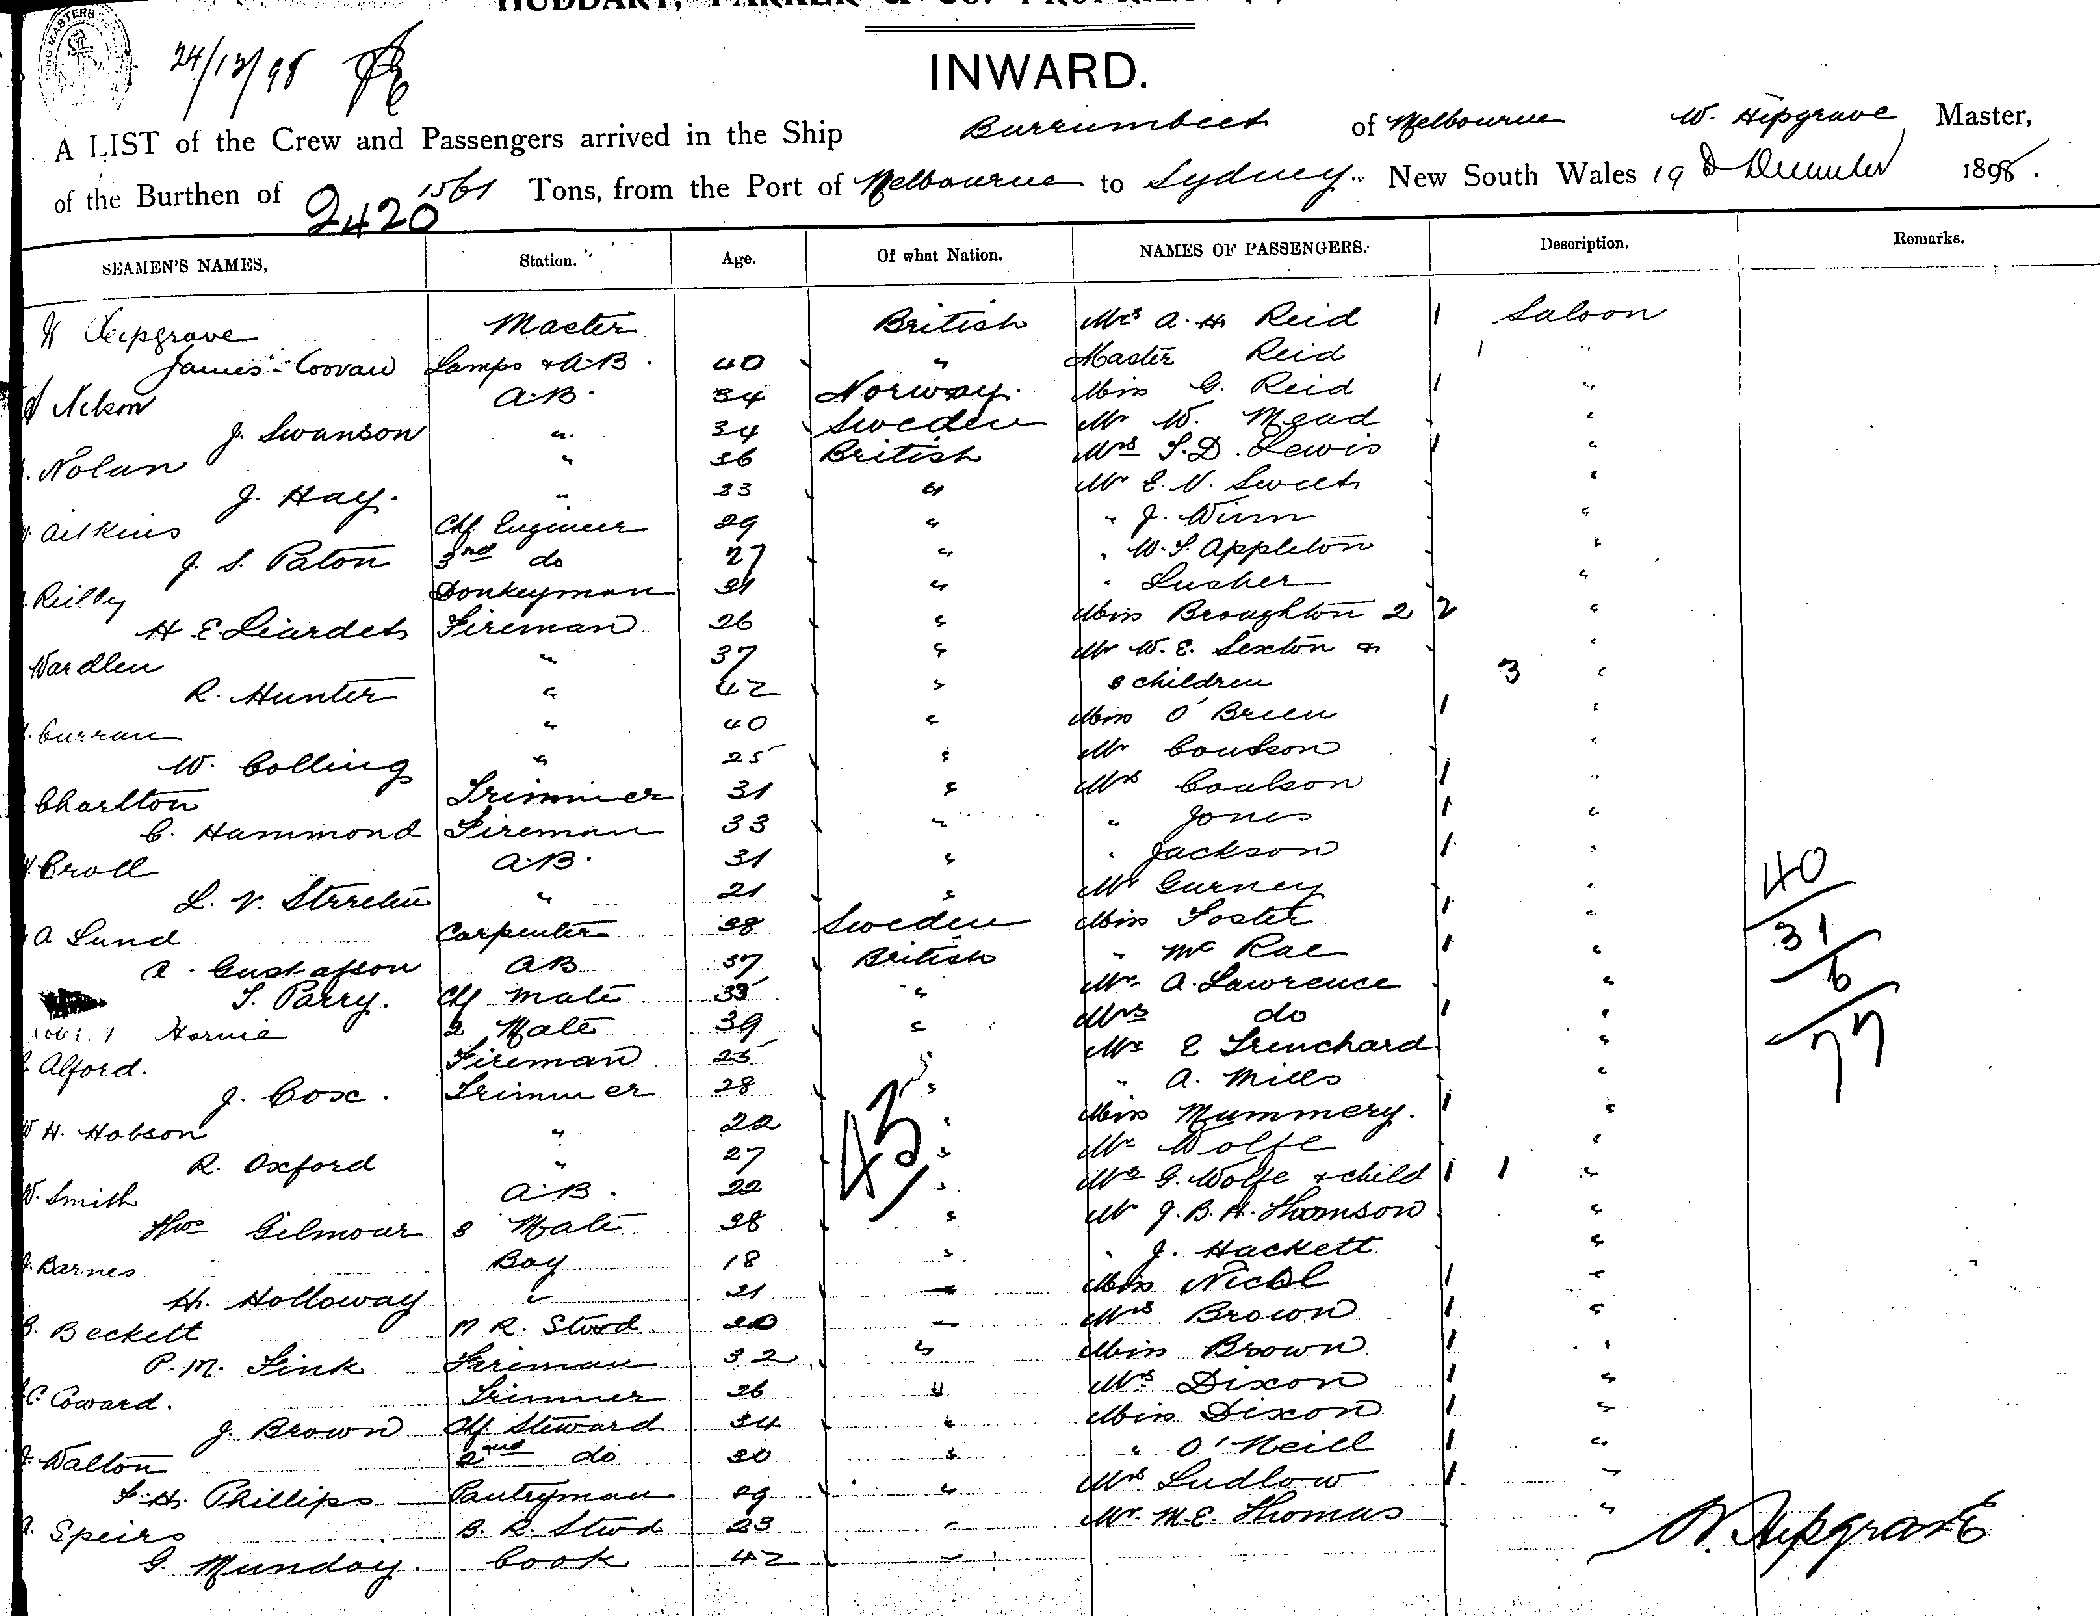 24/12/98
INWARD.
A LIST of the Crew and Passengers arrived in the Ship Burrumbeet of Melbourne W. Hipgrave Master,
of the Burthen of 1561 Tons, from the Port of Melbourne to Sydney New South Wales 19 December 1898.
2420
SEAMEN'S NAMES, Station. Age. Of what Nation. NAMES OF PASSENGERS. Description. Remarks.
W Hipgrave Master British Mrs A. H Reid 1 Saloon
James Lamps & A.B. 40 " Master Reid 1 "
Nelson A.B. 34 Norway Miss G. Reid 1 "
J. Swanson " 34 Sweden Mr W. Mead "
Nolan " 36 British Mrs S. D. Lewis 1 "
J. Hay. " 33 " Mr E. N. Sweet "
Aitkins Chf Engineer 29 " " J. Winn "
J. S. Paton 3rd do 27 " " W. S. Appleton "
Reilly Donkeyman 31 " " Lusher "
H E Liardet Fireman 26 " Miss Broughton 2 2 "
Wardlen " 37 " Mr W. E. Sexton &
R. Hunter " 42 " 3 children 3 "
Curran " 40 " Miss O'Brien 1 "
W. Colling " 25 " Mr Coulson "
Charlton Trimmer 31 " Mrs Coulson 1 "
C. Hammond Fireman 33 " " Jones 1 "
Croll A.B. 31 " " Jackson 1 "
L. V. " 21 " Mr Gurney "
A Lund Carpenter 38 Sweden Miss Foster 1 "
A. Gustafson AB 37 British " McRae 1 "
T. Parry. Chf Mate 35 " Mr. A. Lawrence "
Hornie 2 Mate 39 " Mrs do 1 "
Alford. Fireman 25 " Mr E Trenchard "
J. Cox. Trimmer 28 " " A. Mills "
W H. Hobson " 22 " Miss Mummery. 1 "
R. Oxford " 27 " Mr Wolfe "
W. Smith A.B. 22 " Mrs G. Wolfe & child 1 1 "
Thos Gilmour 3 Mate 28 " Mr J. B. H. Thomson "
J. Barnes Boy 18 " " J. Hackett "
H. Holloway " 21 " Miss Nicol 1 "
Beckett Stwd 20 " Mrs Brown 1 "
P. M. Fink Fireman 32 " Miss Brown 1 "
C Coward. Trimmer 26 " Mrs Dixon 1 "
J. Brown Chf Steward 34 " Miss Dixon 1 "
Walton 2nd do 30 " " O'Neill 1 "
F. H. Phillips Pantryman 29 " Mrs Ludlow 1 "
Speirs B. R. Stwd 23 " Mr. M. E. Thomas "
G. Munday. Cook 42 "
43
40
31
6
77
W. Hipgrave